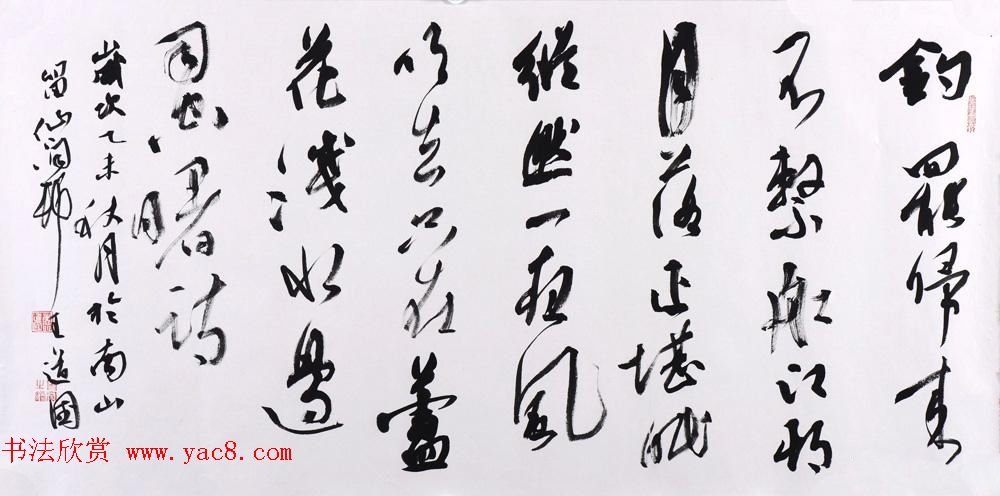 釣罷歸來
不繫船江邨
月落正堪眠
縱然一夜風
吹去只在蘆
花淺水邊
司空曙詩
歲次乙未秋月於南山
留仙 王道國
书法欣赏 www.yac8.com